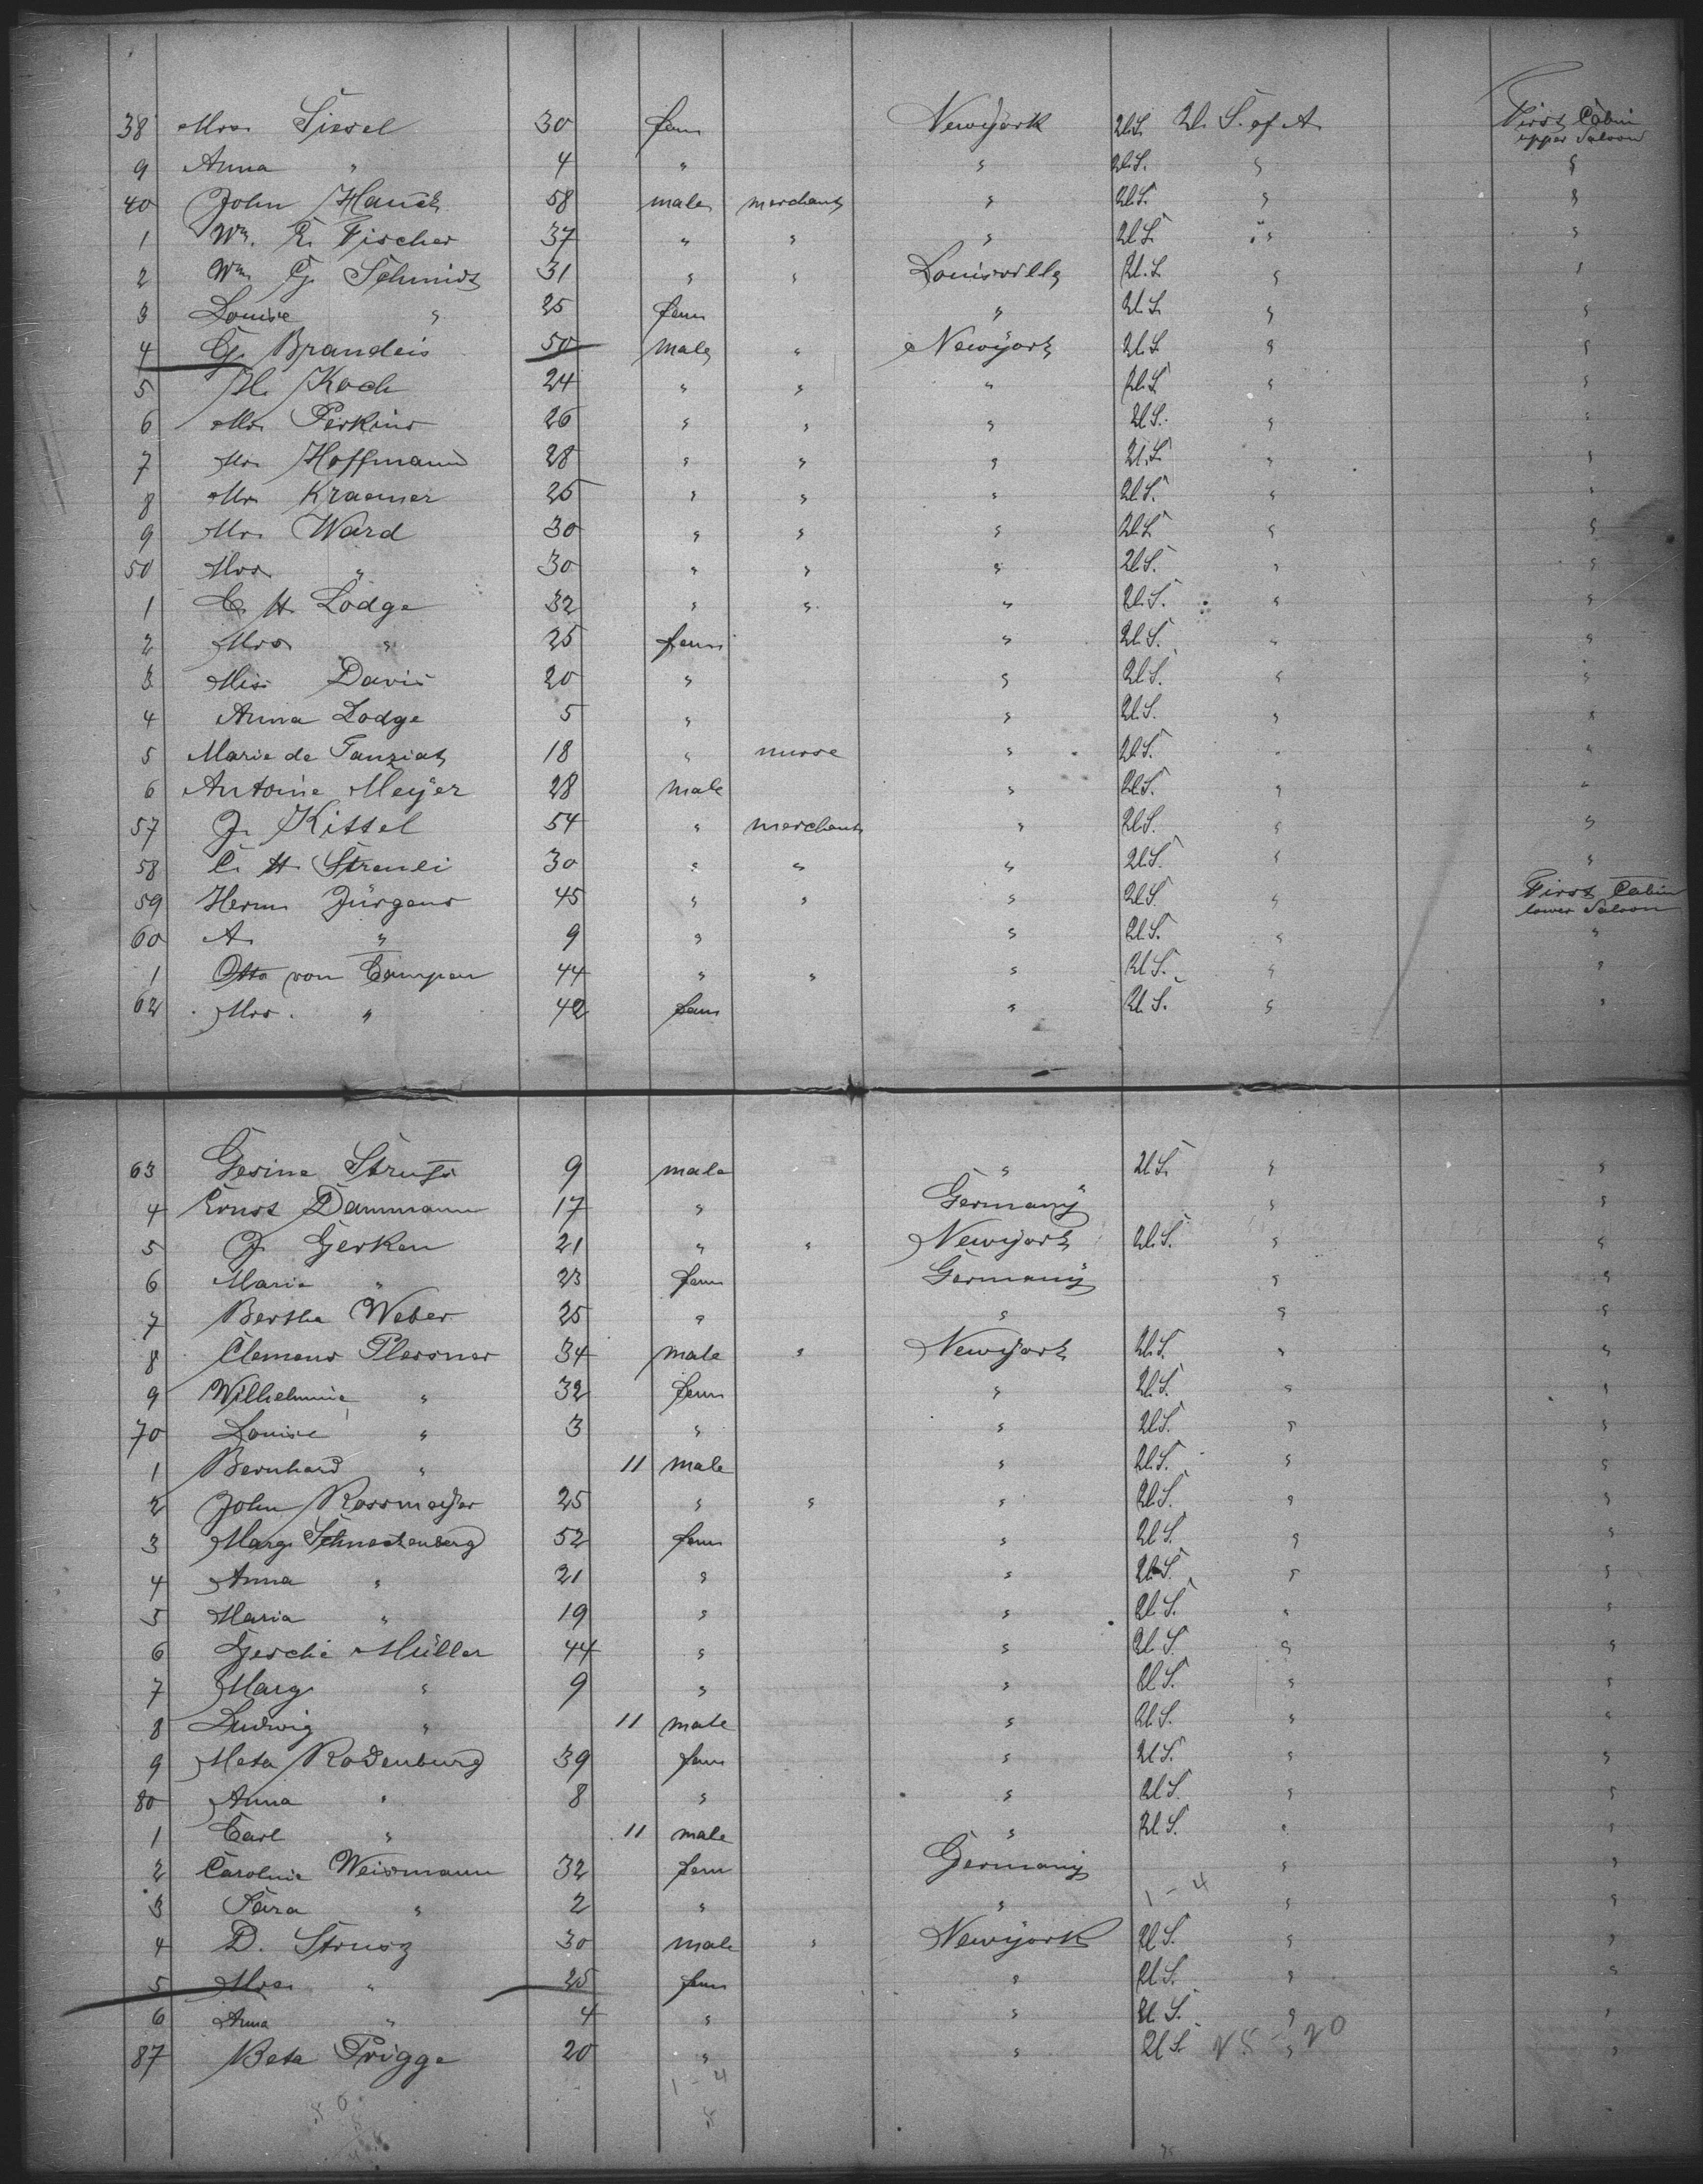 38 Mrs. Siesel 30 fem Newyork U.S. U. S. of A. First Cabin upper Saloon
9 Anna " 4 " " U.S. " "
40 John Hauck 58 male merchant " U.S. " "
1 Wm. E. Fischer 37 " " " U.S. " "
2 Wm G. Schmidt 31 " " Louisville U.S. " "
3 Louise " 25 fem " U.S. " "
4 G. Brandeis 50 male " Newyork U.S. " "
5 H. Koch 24 " " " U.S. " "
6 Mr. Perkins 26 " " " U.S. " "
7 Mr. Hoffmann 28 " " " U.S. " "
8 Mr. Kraemer 25 " " " U.S. " "
9 Mr. Ward 30 " " " U.S. " "
50 Mrs. " 30 " " " U.S. " "
1 C. H. Lodge 32 " " " U.S. " "
2 Mrs " 25 fem " U.S. " "
3 Miss Davis 20 " " U.S. " "
4 Anna Lodge 5 " " U.S. " "
5 Marie de 18 " nurse " U.S. " "
6 Antoine Meyer 28 male " U.S. " "
57 J. Kittel 54 " merchant " U.S. " "
58 C. H. 30 " " " U.S. " "
59 Herm Jürgens 45 " " " U.S. " First Cabin lower Saloon
60 A. " 9 " " U.S. " "
1 Otto von 44 " " " U.S. " "
62 Mrs. " 42 fem " U.S. " "
63 Gesine 9 male " U.S. " "
4 Ernst Dammann 17 " Germany " "
5 J. Gerken 21 " " Newyork U.S. " "
6 Marie " 23 fem Germany " "
7 Bertha Weber 25 " " " "
8 Clemens Plessner 34 male " Newyork U.S. " "
9 Wilhelmine " 32 fem " U.S. " "
70 Louise " 3 " " U.S. " "
1 Bernhard " 11 male " U.S. " "
2 John Rossmeyer 25 " " " U.S. " "
3 Marg. 52 fem " U.S. " "
4 Anna " 21 " " U.S. " "
5 Maria " 19 " " U.S. " "
6 Gesche Müller 44 " " U.S. " "
7 Marg. " 9 " " U.S. " "
8 Ludwig " 11 male " U.S. " "
9 Meta Rodenburg 39 fem " U.S. " "
80 Anna " 8 " " U.S. " "
1 Carl " 11 male " U.S. " "
2 Caroline Weismann 32 fem Germany " "
3 " 2 " " 1-4 " "
4 D. 30 male " Newyork U.S. " "
5 Mrs. " 25 fem " U.S. " "
6 Anna " 4 " " U.S. " "
87 Beta Prigge 20 " " U.S. " "
1-4